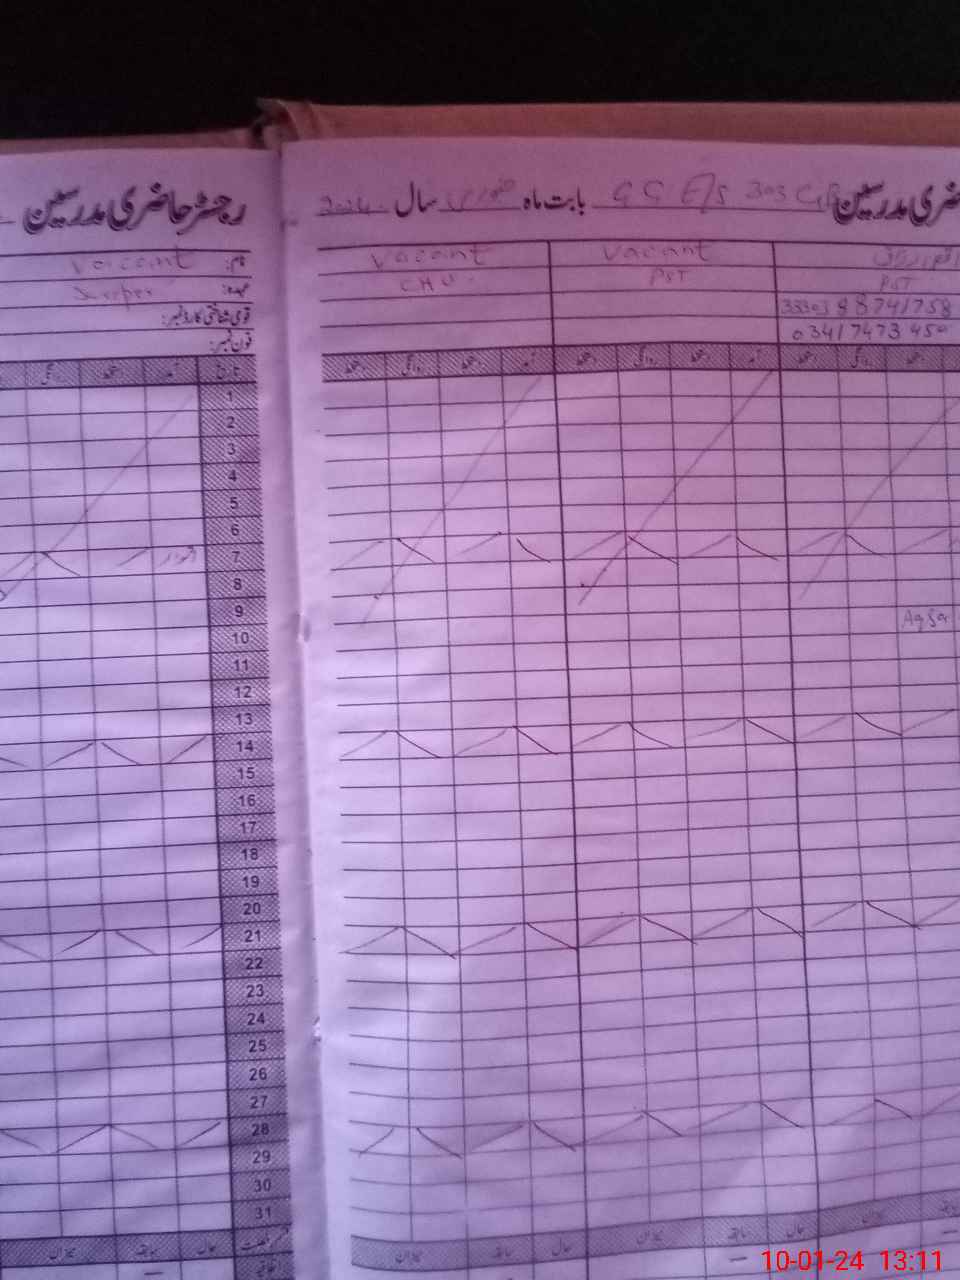 رجسٹر حاضری مدرسین
نام: vacant
عہدہ:
قومی شناختی کارڈ نمبر:
فون نمبر:
تاریخ
1
2
3
4
5
6
7 اتوار
8
9
10
11
12
13
14
15
16
17
18
19
20
21
22
23
24
25
26
27
28
29
30
31
میزان سابقہ حال
حاضری مدرسین G G E/S 303 بابت ماہ جنوری سال 2024
vacant vacant
PST PST
88741758
03417473450
آمد دستخط روانگی دستخط
Aqsa
میزان سابقہ حال میزان
10-01-24 13:11